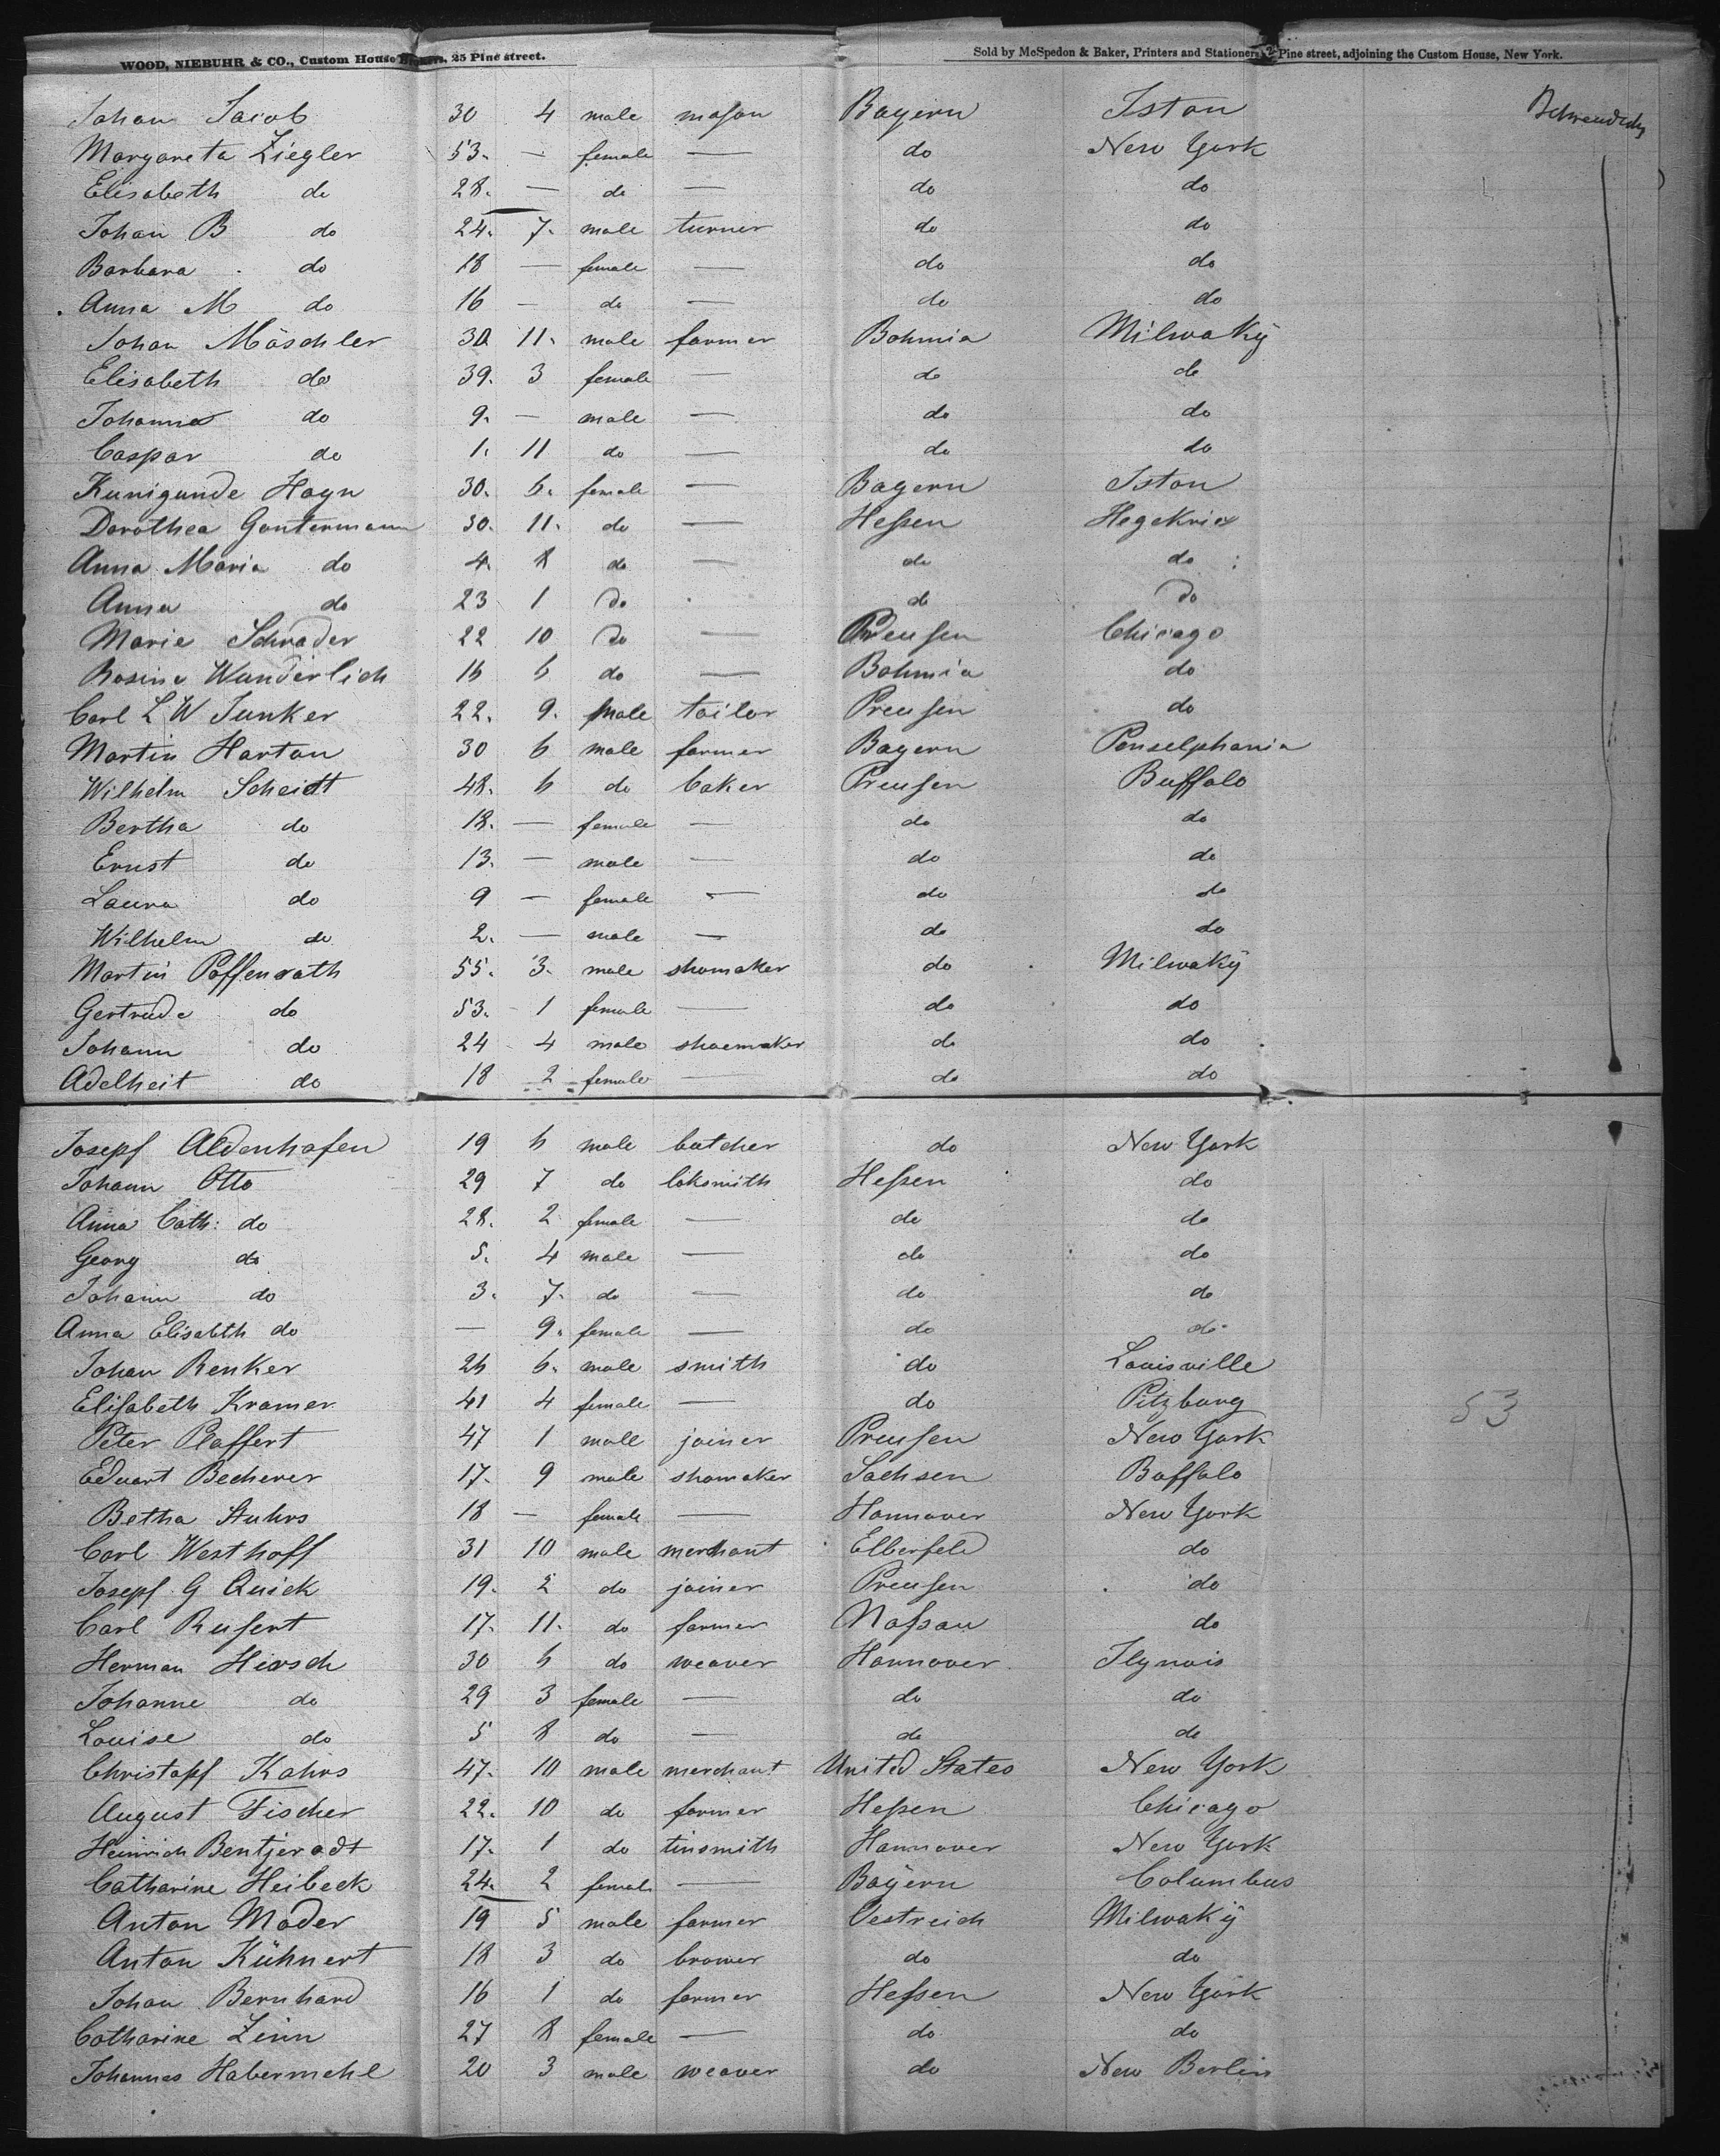 WOOD, NIEBUHR & CO., Custom House Brokers, 25 Pine street. Sold by McSpedon & Baker, Printers and Stationers, 25 Pine street, adjoining the Custom House, New York.
Johan Jacob 30 4 male mason Bayern Iston
Margareta Ziegler 53. — female — do New York
Elisabeth do 28. — do — do do
Johan B do 24. 7. male turner do do
Barbara do 18 — female — do do
Anna M do 16 — do — do do
Johan Mäschler 30 11. male farmer Bohmia Milwaky
Elisabeth do 39. 3 female — do do
Johanna do 9. — male — do do
Caspar do 1. 11 do — do do
Kunigunde Hagn 30. 6. female — Bayern Iston
Dorothea Gontermann 30. 11. do — Hessen
Anna Maria do 4. 8 do — do do
Anna do 23 1 do do do
Marie Schrader 22 10 do — Preusen Chicago
Rosine Wunderlich 16 6 do — Bohmia do
Carl L W Junker 22. 9. male tailor Preusen do
Martin Hartan 30 6 male farmer Bayern Penselphania
Wilhelm Scheidt 48. 6 do baker Preusen Buffalo
Bertha do 18. — female — do do
Ernst do 13. — male — do do
Laura do 9 — female — do do
Wilhelm do 2. — male — do do
Martin Poffenrath 55. 3. male shomaker do Milwaky
Gertrude do 53. 1 female — do do
Johann do 24 4 male shoemaker do do
Adelheit do 18 2 female — do do
Josepf Aldenhofen 19 6 male butcher do New York
Johann Otto 29 7 do loksmith Hessen do
Anna Cath: do 28. 2 female — do do
Georg do 5. 4 male — do do
Johann do 3. 7. do — do do
Anna Elisabeth do — 9. female — do do
Johan Renker 26 6. male smith do Louisville
Elisabeth Kramer 41 4 female — do Pitzburg 53
Peter Plaffert 47 1 male joiner Preusen New York
Eduart Becherer 17. 9 male shomaker Sachsen Buffalo
Betha Stuhrs 18 — female — Hannover New York
Carl Westhoff 31 10 male merchant Elberfeld do
Josepf G Quick 19. 2 do joiner Preusen do
Carl Reusert 17. 11. do farmer Nassau do
Herman Hirsch 30 6 do weaver Hannover Ilynois
Johanne do 29 3 female — do do
Louise do 5 8 do — do do
Christopf Kahrs 47. 10 male merchant United States New York
August Fischer 22. 10 do farmer Hessen Chicago
Heinrich Bentjerodt 17. 1 do tinsmith Hannover New York
Catharine Heibeck 24. 2 female — Bayern Columbus
Anton Mader 19 5 male farmer Oestreich Milwaky
Anton Kühnert 18 3 do brower do do
Johan Bernhard 16 1 do farmer Hessen New York
Catharine Zinn 27 8 female — do do
Johannes Habermehl 20 3 male weaver do New Berlin